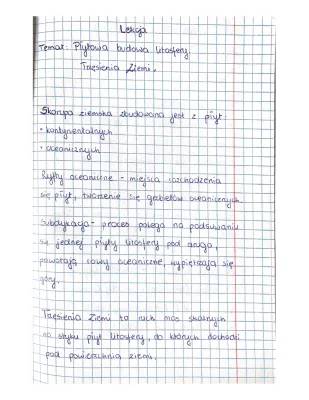 Lekcja
Temat: Płytowa budowa litosfery
Trzęsienia Ziemi.
Skorupa ziemska zbudowana jest z płyt:
• kontynentalnych
• oceanicznych
Ryfty oceaniczne - miejsca rozchodzenia
się płyt, tworzenie się grzbietów oceanicznych
Subdukcja - proces polega na podsuwaniu
się jednej płyty litosfery pod drugą,
powstają rowy oceaniczne, wypiętrzają się
góry.
Trzęsienia Ziemi to ruch mas skalnych
na styku płyt litosfery, do których dochodzi
pod powierzchnią ziemi.